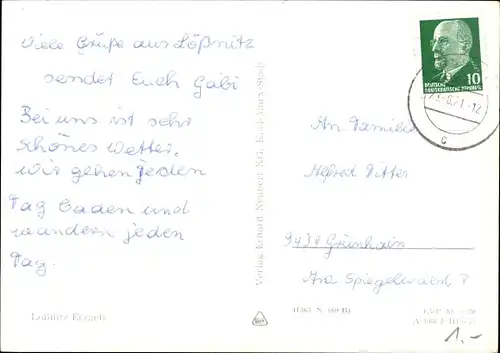 Viele Grüße aus Lößnitz
sendet Euch Gabi
Bei uns ist sehr
schönes Wetter.
wir gehen jeden
Tag baden und
wandern jeden
Tag.
Lößnitz Erzgeb.
Verlag Erhard Neubert KG, Karl-Marx-Stadt
10
DEUTSCHE
DEMOKRATISCHE REPUBLIK
An Familie
Alfred
9437 Grünhain
Am Spiegelwald 7
1.-